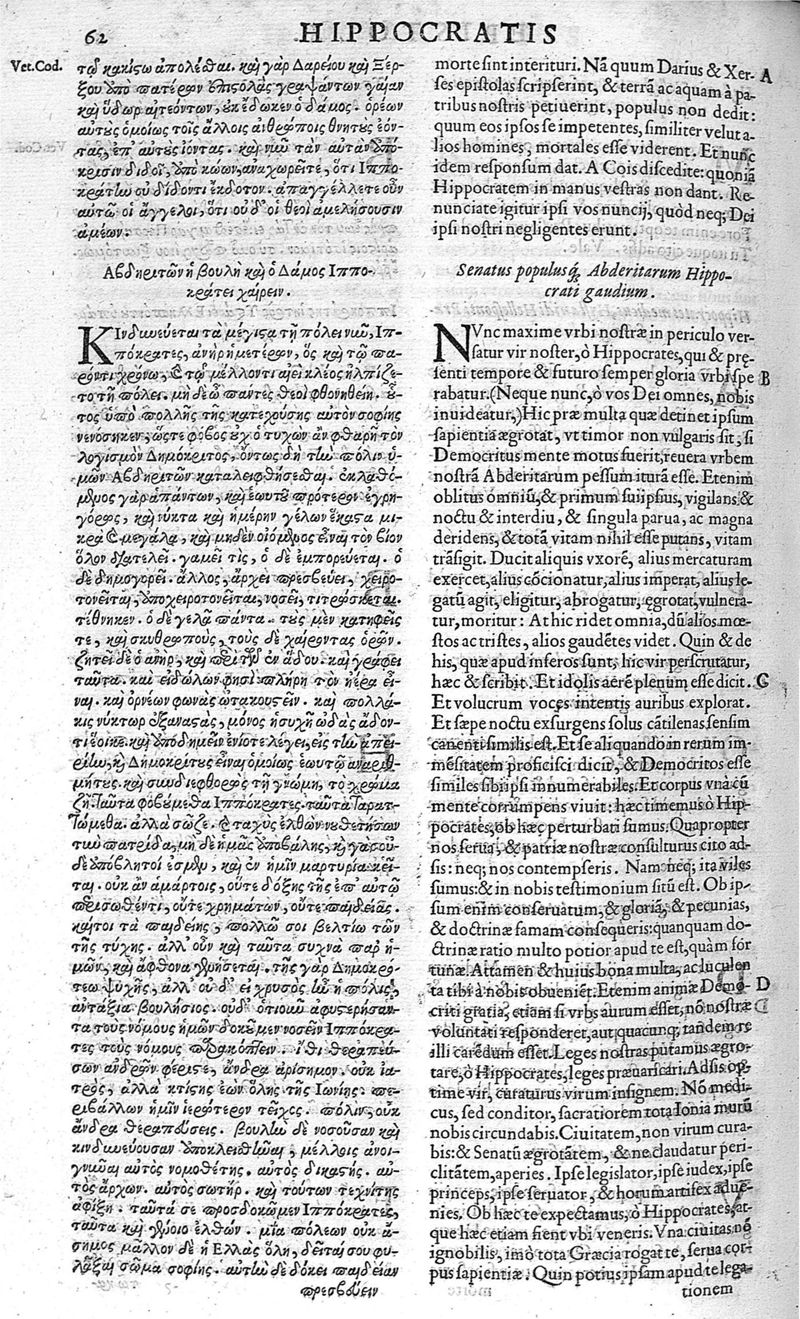 62
HIPPOCRATIS
Vet. Cod.
τῷ κακίςῳ ἀπολέσθαι. καὶ γὰρ Δαρείου καὶ Ξέρ-
ξου ὑπὸ πατέρων ἐπιςολὰς γραψάντων γαῖαν
καὶ ὕδωρ αἰτεόντων, οὐκ ἔδωκεν ὁ δᾶμος. ὁρέων
αὐτοὺς ὁμοίως τοῖς ἄλλοις ἀνθρώποις θνητοὺς ἐόν-
τας, ἐπ' αὐτοὺς ἰόντας. καὶ νῦν τὰν αὐτὰν ὑπό-
κρισιν διδοῖ, ἀπὸ κώων, ἀναχωρεῖτε, ὅτι Ἱππο-
κράτω οὐ δίδοντι ἔκδοτον. ἀπαγγέλλετε οὖν
αὐτῷ οἱ ἄγγελοι, ὅτι οὐδ' οἱ θεοὶ ἀμελήσουσιν
ἁμέων.
Ἀβδηριτῶν ἡ βουλὴ καὶ ὁ Δᾶμος Ἱππο-
κράτει χαίρειν.
Κινδυνεύεται τὰ μέγιςα τῇ πόλει νῦν, Ἱπ-
πόκρατες, ἀνὴρ ἡμετέρων, ὃς καὶ τῷ πα-
ρόντι χρόνῳ, καὶ τῷ μέλλοντι αἰεὶ κλέος ἠλπίζε-
το τῇ πόλει. μὴ δὲ ὦ πάντες θεοὶ φθονηθείη. οὗ-
τος ὑπὸ πολλῆς τῆς κατεχούσης αὐτὸν σοφίης
νενόσηκεν, ὥςτε φόβος οὐχ ὁ τυχὼν ἂν φθαρῇ τὸν
λογισμὸν Δημόκριτος, ὄντως δὴ τὴν πόλιν ὑ-
μῶν Ἀβδηριτῶν καταλειφθήσεσθαι. ἐκλαθό-
μενος γὰρ ἁπάντων, καὶ ἑωυτοῦ πρότερον ἐγρη-
γόρως, καὶ νύκτα καὶ ἡμέρην γελῶν ἕκαςα μι-
κρὰ καὶ μεγάλα, καὶ μηδὲν οἰόμενος εἶναι τὸν βίον
ὅλον διατελεῖ. γαμεῖ τίς, ὁ δὲ ἐμπορεύεται. ὁ
δὲ δημογορεῖ. ἄλλος, ἄρχει πρεσβεύει, χειρο-
τονεῖται, ὑποχειροτονεῖται, νοσεῖ, τιτρώσκεται.
τέθνηκεν. ὁ δὲ γελᾷ πάντα. τοὺς μὲν κατηφεῖς
τε, καὶ σκυθρωποὺς, τοὺς δὲ χαίροντας ὁρῶν.
ζητεῖ δὲ ὁ ἀνὴρ, καὶ περὶ τῶν ἐν ᾅδου. καὶ γράφει
ταῦτα. καὶ εἰδώλων φησὶ πλήρη τὸν ἠέρα εἶ-
ναι. καὶ ὀρνέων φωνὰς ὠτακουςεῖν. καὶ πολλά-
κις νύκτωρ ἐξαναςὰς, μόνος ἡσυχῇ ᾠδὰς ᾄδον-
τι ἔοικε. καὶ ἀποδημεῖν ἐνίοτε λέγει, εἰς τὴν ἀπει-
ρίην, καὶ Δημοκρίτους εἶναι ὁμοίως ἑωυτῷ ἀναριθ-
μήτους. καὶ συνδιεφθορὼς τῇ γνώμῃ, τὸ χρῶμα
ζῇ. Ταῦτα φοβούμεθα Ἱππόκρατες. ταῦτα Ταρατ-
τώμεθα. ἀλλὰ σῶζε. καὶ ταχὺς ἐλθὼν νουθετήσων
τὴν πατρίδα, μὴ δὲ ἡμᾶς ὑποβάλῃς, καὶ γὰρ οὐ-
δὲ ὑπόβλητοι ἐσμὲν, καὶ ἐν ἡμῖν μαρτυρία κεῖ-
ται. οὐκ ἂν ἁμάρτοις, οὔτε δόξης τῆς ἐπ' αὐτῷ
περισωθέντι, οὔτε χρημάτων, οὔτε παιδείας.
καίτοι τὰ παιδείης, πολλῷ σοι βελτίω τῶν
τῆς τύχης. ἀλλ' οὖν καὶ ταῦτα συχνὰ παρ' ἡ-
μῶν, καὶ ἄφθονα χρήσεται. τῆς γὰρ Δημοκρί-
τεω ψυχῆς, ἀλλ' οὐδ' εἰ χρυσὸς ἦν ἡ πόλις,
ἀντάξια βουλήσιος. οὐδ' ὁτιοῦν ἀφυςερήσαν-
τα τοὺς νόμους ἡμῶν δοκοῦμεν νοσεῖν Ἱππόκρα-
τες τοὺς νόμους παρακόπτειν. ἴθι θεραπεύ-
σων ἀνδρῶν φέριςε, ἄνδρα ἀρίσημον. οὐκ ἰα-
τρὸς, ἀλλὰ κτίςης ἐὼν ὅλης τῆς Ἰωνίης. πε-
ριβάλλων ἡμῖν ἱερώτερον τεῖχος. πόλιν, οὐκ
ἄνδρα θεραπεύσεις. βουλὴν δὲ νοσοῦσαν καὶ
κινδυνεύουσαν ἀποκλεισθῆναι, μέλλοις ἀνοι-
γνῦναι αὐτὸς νομοθέτης. αὐτὸς δικαςής. αὐ-
τὸς ἄρχων. αὐτὸς σωτήρ. καὶ τούτων τεχνίτης
ἀφίξῃ. ταῦτά σε προσδοκῶμεν Ἱππόκρατες,
ταῦτα καὶ γένοιο ἐλθών. μία πόλεων οὐκ ἄ-
σημος μᾶλλον δὲ ἡ Ἑλλὰς ὅλη, δεῖταί σου φυ-
λάξαι σῶμα σοφίης. αὐτὴν δὲ δόκει παιδείαν
πρεσβεύειν
morte sint interituri. Nā quum Darius & Xer-
ses epistolas scripserint, & terrā ac aquam à pa-
tribus nostris petiuerint, populus non dedit:
quum eos ipsos se impetentes, similiter velut a-
lios homines, mortales esse viderent. Et nunc
idem responsum dat. A Cois discedite: quoniā
Hippocratem in manus vestras non dant. Re-
nunciate igitur ipsi vos nuncij, quòd neq; Dei
ipsi nostri negligentes erunt.
Senatus populusq́; Abderitarum Hippo-
crati gaudium.
NVnc maxime vrbi nostræ in periculo ver-
satur vir noster, ò Hippocrates, qui & pręs-
senti tempore & futuro semper gloria vrbi spe
rabatur. (Neque nunc, ò vos Dei omnes, nobis
inuideatur.) Hic præ multa quæ detinet ipsum
sapientia ægrotat, vt timor non vulgaris sit, si
Democritus mente motus fuerit, reuera vrbem
nostrā Abderitarum pessum itura esse. Etenim
oblitus omniū, & primum suiipsius, vigilans &
noctu & interdiu, & singula parua, ac magna
deridens, & totā vitam nihil esse putans, vitam
trāsigit. Ducit aliquis vxorē, alius mercaturam
exercet, alius cōcionatur, alius imperat, alius le-
gatū agit, eligitur, abrogatur, ęgrotat, vulnera-
tur, moritur: At hic ridet omnia, dū alios mœ-
stos ac tristes, alios gaudētes videt. Quin & de
his, quæ apud inferos sunt, hic vir perscrutatur,
hæc & scribit. Et idolis aerē plenum esse dicit.
Et volucrum voces intentis auribus explorat.
Et sæpe noctu exsurgens solus cātilenas sensim
canenti similis est. Et se aliquando in rerum im-
mēsitatem proficisci dicit, & Democritos esse
similes sibi ipsi innumerabiles. Et corpus vnà cū
mente corrumpens viuit: hæc timemus ò Hip-
pocrates, ob hæc perturbati sumus. Quapropter
nos serua, & patriæ nostræ consulturus cito ad-
sis: neq; nos contempseris. Nam neq; ita viles
sumus: & in nobis testimonium sitū est. Ob ip-
sum enim conseruatum, & gloriā, & pecunias,
& doctrinæ famam consequeris: quanquam do-
ctrinæ ratio multo potior apud te est, quàm for
tunæ. Attamen & huius bona multa, ac luculen
ta tibi à nobis obueniēt. Etenim animæ Demo-
criti gratia, etiam si vrbs aurum esset, nō nostræ
voluntati responderet, aut quacunq; tandem re
illi carēdum esset. Leges nostras putamus ægro-
tare, ò Hippocrates, leges præuaricari. Adsis op-
time vir, curaturus virum insignem. Nō medi-
cus, sed conditor, sacratiorem tota Ionia murū
nobis circundabis. Ciuitatem, non virum cura-
bis: & Senatū ægrotātem, & ne claudatur peri-
clitātem, aperies. Ipse legislator, ipse iudex, ipse
princeps, ipse seruator, & horum artifex adue-
nies. Ob hæc te expectamus, ò Hippocrates, at-
que hæc etiam fient vbi veneris. Vna ciuitas nō
ignobilis, imò tota Græcia rogat te, serua cor-
pus sapientiæ. Quin potius ipsam apud te lega-
tionem
A
B
C
D